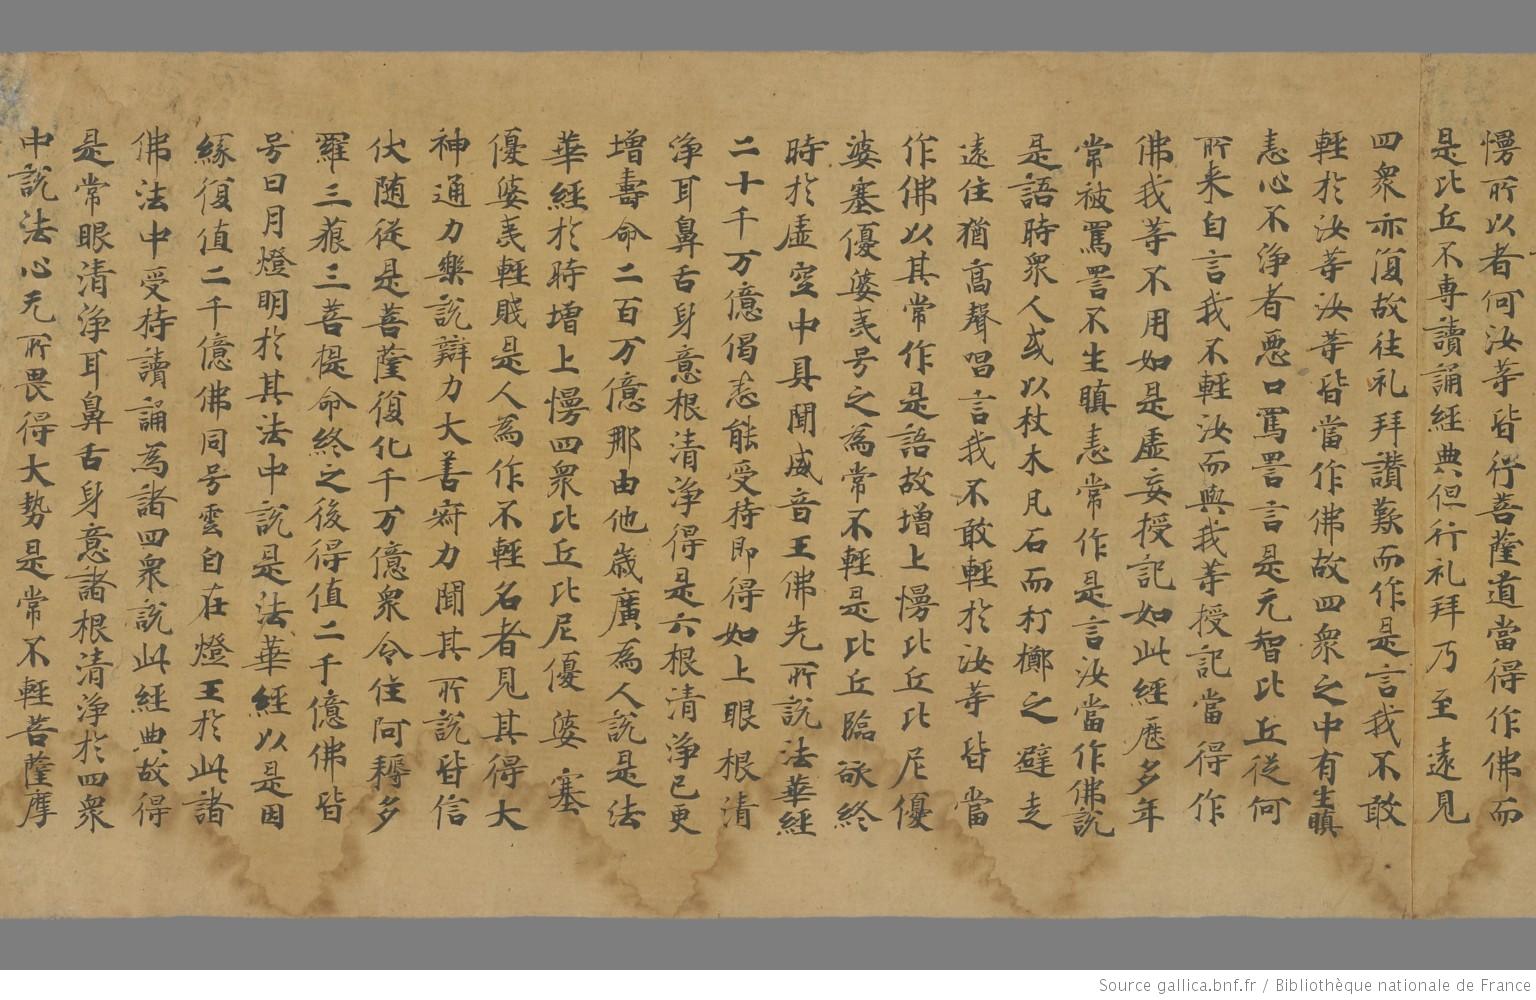 慢所以者何汝等皆行菩薩道當得作佛而
是比丘不専讀誦經典但行礼拜乃至遠見
四衆亦復故往礼拜讃歎而作是言我不敢
輕於汝等汝等皆當作佛故四衆之中有生瞋
恚心不淨者悪口罵詈言是无智比丘従何
所来自言我不輕汝而與我等授記當得作
佛我等不用如是虚妄授記如此經歴多年
常被罵詈不生瞋恚常作是言汝當作佛說
是語時衆人或以杖木凡石而打擲之避走
遠住猶高聲唱言我不敢輕於汝等皆當
作佛以其常作是語故増上慢比丘比尼優
婆塞優婆夷号之為常不輕是比丘臨欲終
時於虚空中具聞威音王佛先所說法華經
二十千万億偈悉能受持即得如上眼根清
淨耳鼻舌身意根清淨得是六根清淨已更
増壽命二百万億那由他歳廣為人說是法
華經於時増上慢四衆比丘比尼優婆塞
優婆夷輕賎是人為作不輕名者見其得大
神通力樂說辯力大善寂力聞其所說皆信
伏随従是菩薩復化千万億衆令住阿耨多
羅三藐三菩提命終之後得值二千億佛皆
号日月燈明於其法中說是法華經以是因
緣復值二千億佛同号雲自在燈王於此諸
佛法中受持讀誦為諸四衆說此經典故得
是常眼清淨耳鼻舌身意諸根清淨於四衆
中說法心无所畏得大勢是常不輕菩薩摩
Source gallica.bnf.fr / Bibliothèque nationale de France